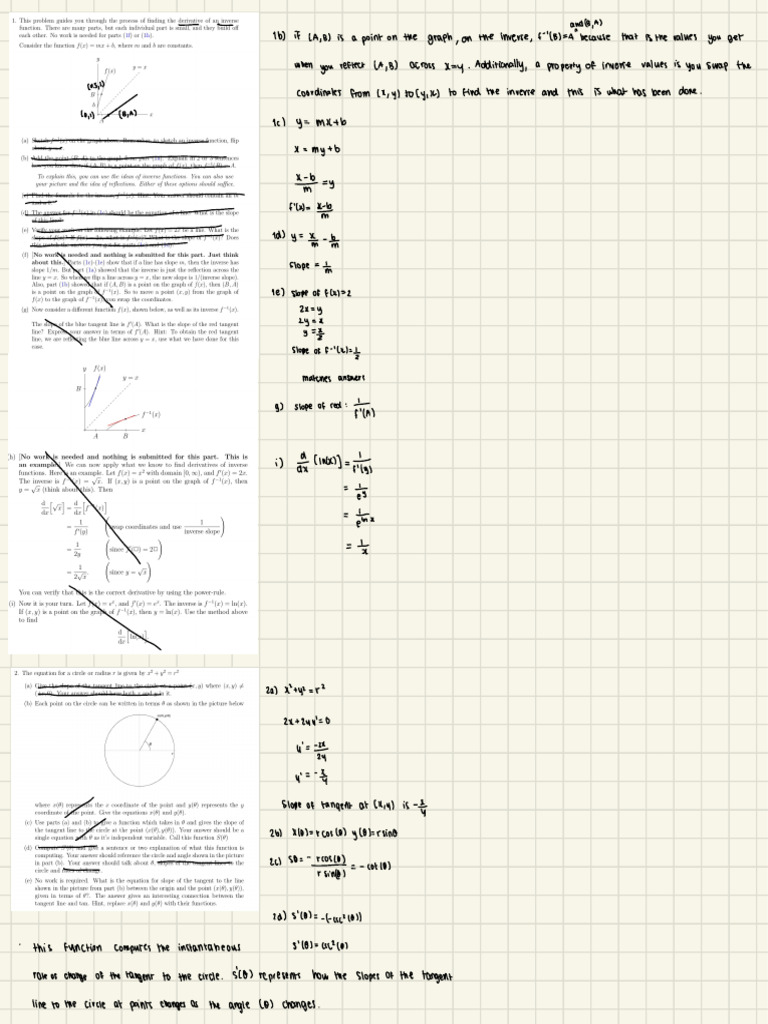 1. This problem guides you through the process of finding the derivative of an inverse
function. There are many parts, but each individual part is small, and they build off
each other. No work is needed for parts (1f) or (1h).
Consider the function f(x) = mx + b, where m and b are constants.
y
f(x)
y = x
B
b
(B,A)
A
x
(a)
flip
(b)
To explain this, you can use the idea of inverse functions. You can also use
your picture and the idea of reflections. Either of these options should suffice.
(f) [No work is needed and nothing is submitted for this part. Just think
about this.] Parts (1c)-(1e) show that if a line has slope m, then the inverse has
slope 1/m. But part (1a) showed that the inverse is just the reflection across the
line y = x. So when we flip a line across y = x, the new slope is 1/(inverse slope).
Also, part (1b) showed that if (A, B) is a point on the graph of f(x), then (B, A)
is a point on the graph of f⁻¹(x). So to move a point (x, y) from the graph of
f(x) to the graph of f⁻¹(x) you swap the coordinates.
(g) Now consider a different function f(x), shown below, as well as its inverse f⁻¹(x).
The slope of the blue tangent line is f'(A). What is the slope of the red tangent
line? Express your answer in terms of f'(A). Hint: To obtain the red tangent
line, we are reflecting the blue line across y = x, use what we have done for this
case.
y f(x)
y = x
B
f⁻¹(x)
A B x
(h) [No work is needed and nothing is submitted for this part. This is
an example] We can now apply what we know to find derivatives of inverse
functions. Here is an example. Let f(x) = x² with domain [0, ∞), and f'(x) = 2x.
The inverse is f⁻¹(x) = √x. If (x, y) is a point on the graph of f⁻¹(x), then
y = √x (think about this). Then
d/dx [√x] = d/dx [f⁻¹(x)]
= 1/f'(y) (swap coordinates and use 1/inverse slope)
= 1/2y (since f'(□) = 2□)
= 1/2√x (since y = √x)
You can verify that this is the correct derivative by using the power-rule.
(i) Now it is your turn. Let f(x) = eˣ, and f'(x) = eˣ. The inverse is f⁻¹(x) = ln(x).
If (x, y) is a point on the graph of f⁻¹(x), then y = ln(x). Use the method above
to find
d/dx [ln(x)]
and (B,A)
1b) if (A,B) is a point on the graph, on the inverse, f⁻¹(B)=A because that is the values you get
when you reflect (A,B) across x=y. Additionally, a property of inverse values is you swap the
coordinates from (x,y) to (y,x) to find the inverse and this is what has been done.
1c) y = mx+b
x = my+b
x-b/m = y
f⁻¹(x)= x-b/m
1d) y = x/m - b/m
slope = 1/m
1e) slope of f(x)=2
2x=y
2y=x
y = x/2
slope of f⁻¹(x)=1/2
matches answers
g) slope of red: 1/f'(A)
i) d/dx [ln(x)] = 1/f'(y)
= 1/e^y
= 1/e^ln x
= 1/x
2. The equation for a circle or radius r is given by x² + y² = r²
(a) Give the slope of the tangent line to the circle at a point (x, y) where (x, y) ≠
Your answer should have both x and y in it.
(b) Each point on the circle can be written in terms θ as shown in the picture below
θ
where x(θ) represents the x coordinate of the point and y(θ) represents the y
coordinate of the point. Give the equations x(θ) and y(θ).
(c) Use parts (a) and (b) to give a function which takes in θ and gives the slope of
the tangent line to the circle at the point (x(θ), y(θ)). Your answer should be a
single equation with θ as it's independent variable. Call this function S(θ)
(d) Compute S'(θ) and give a sentence or two explanation of what this function is
computing. Your answer should reference the circle and angle shown in the picture
in part (b). Your answer should talk about θ, slopes of the tangent lines to the
circle and rates of change.
(e) No work is required. What is the equation for slope of the tangent to the line
shown in the picture from part (b) between the origin and the point (x(θ), y(θ)),
given in terms of θ?. The answer gives an interesting connection between the
tangent line and tan. Hint, replace x(θ) and y(θ) with their functions.
2a) x²+y² = r²
2x+2yy'=0
y' = -2x/2y
y' = -x/y
Slope of tangent at (x,y) is -x/y
2b) x(θ)=rcos(θ) y(θ)=rsinθ
2c) Sθ= - rcos(θ)/r sin(θ) = -cot(θ)
2d) s'(θ) = -(-csc²(θ))
s'(θ)= csc²(θ)
this function computes the instantaneous
rate of change of the tangent to the circle. s'(θ) represents how the slopes of the tangent
line to the circle at points changes as the angle (θ) changes.